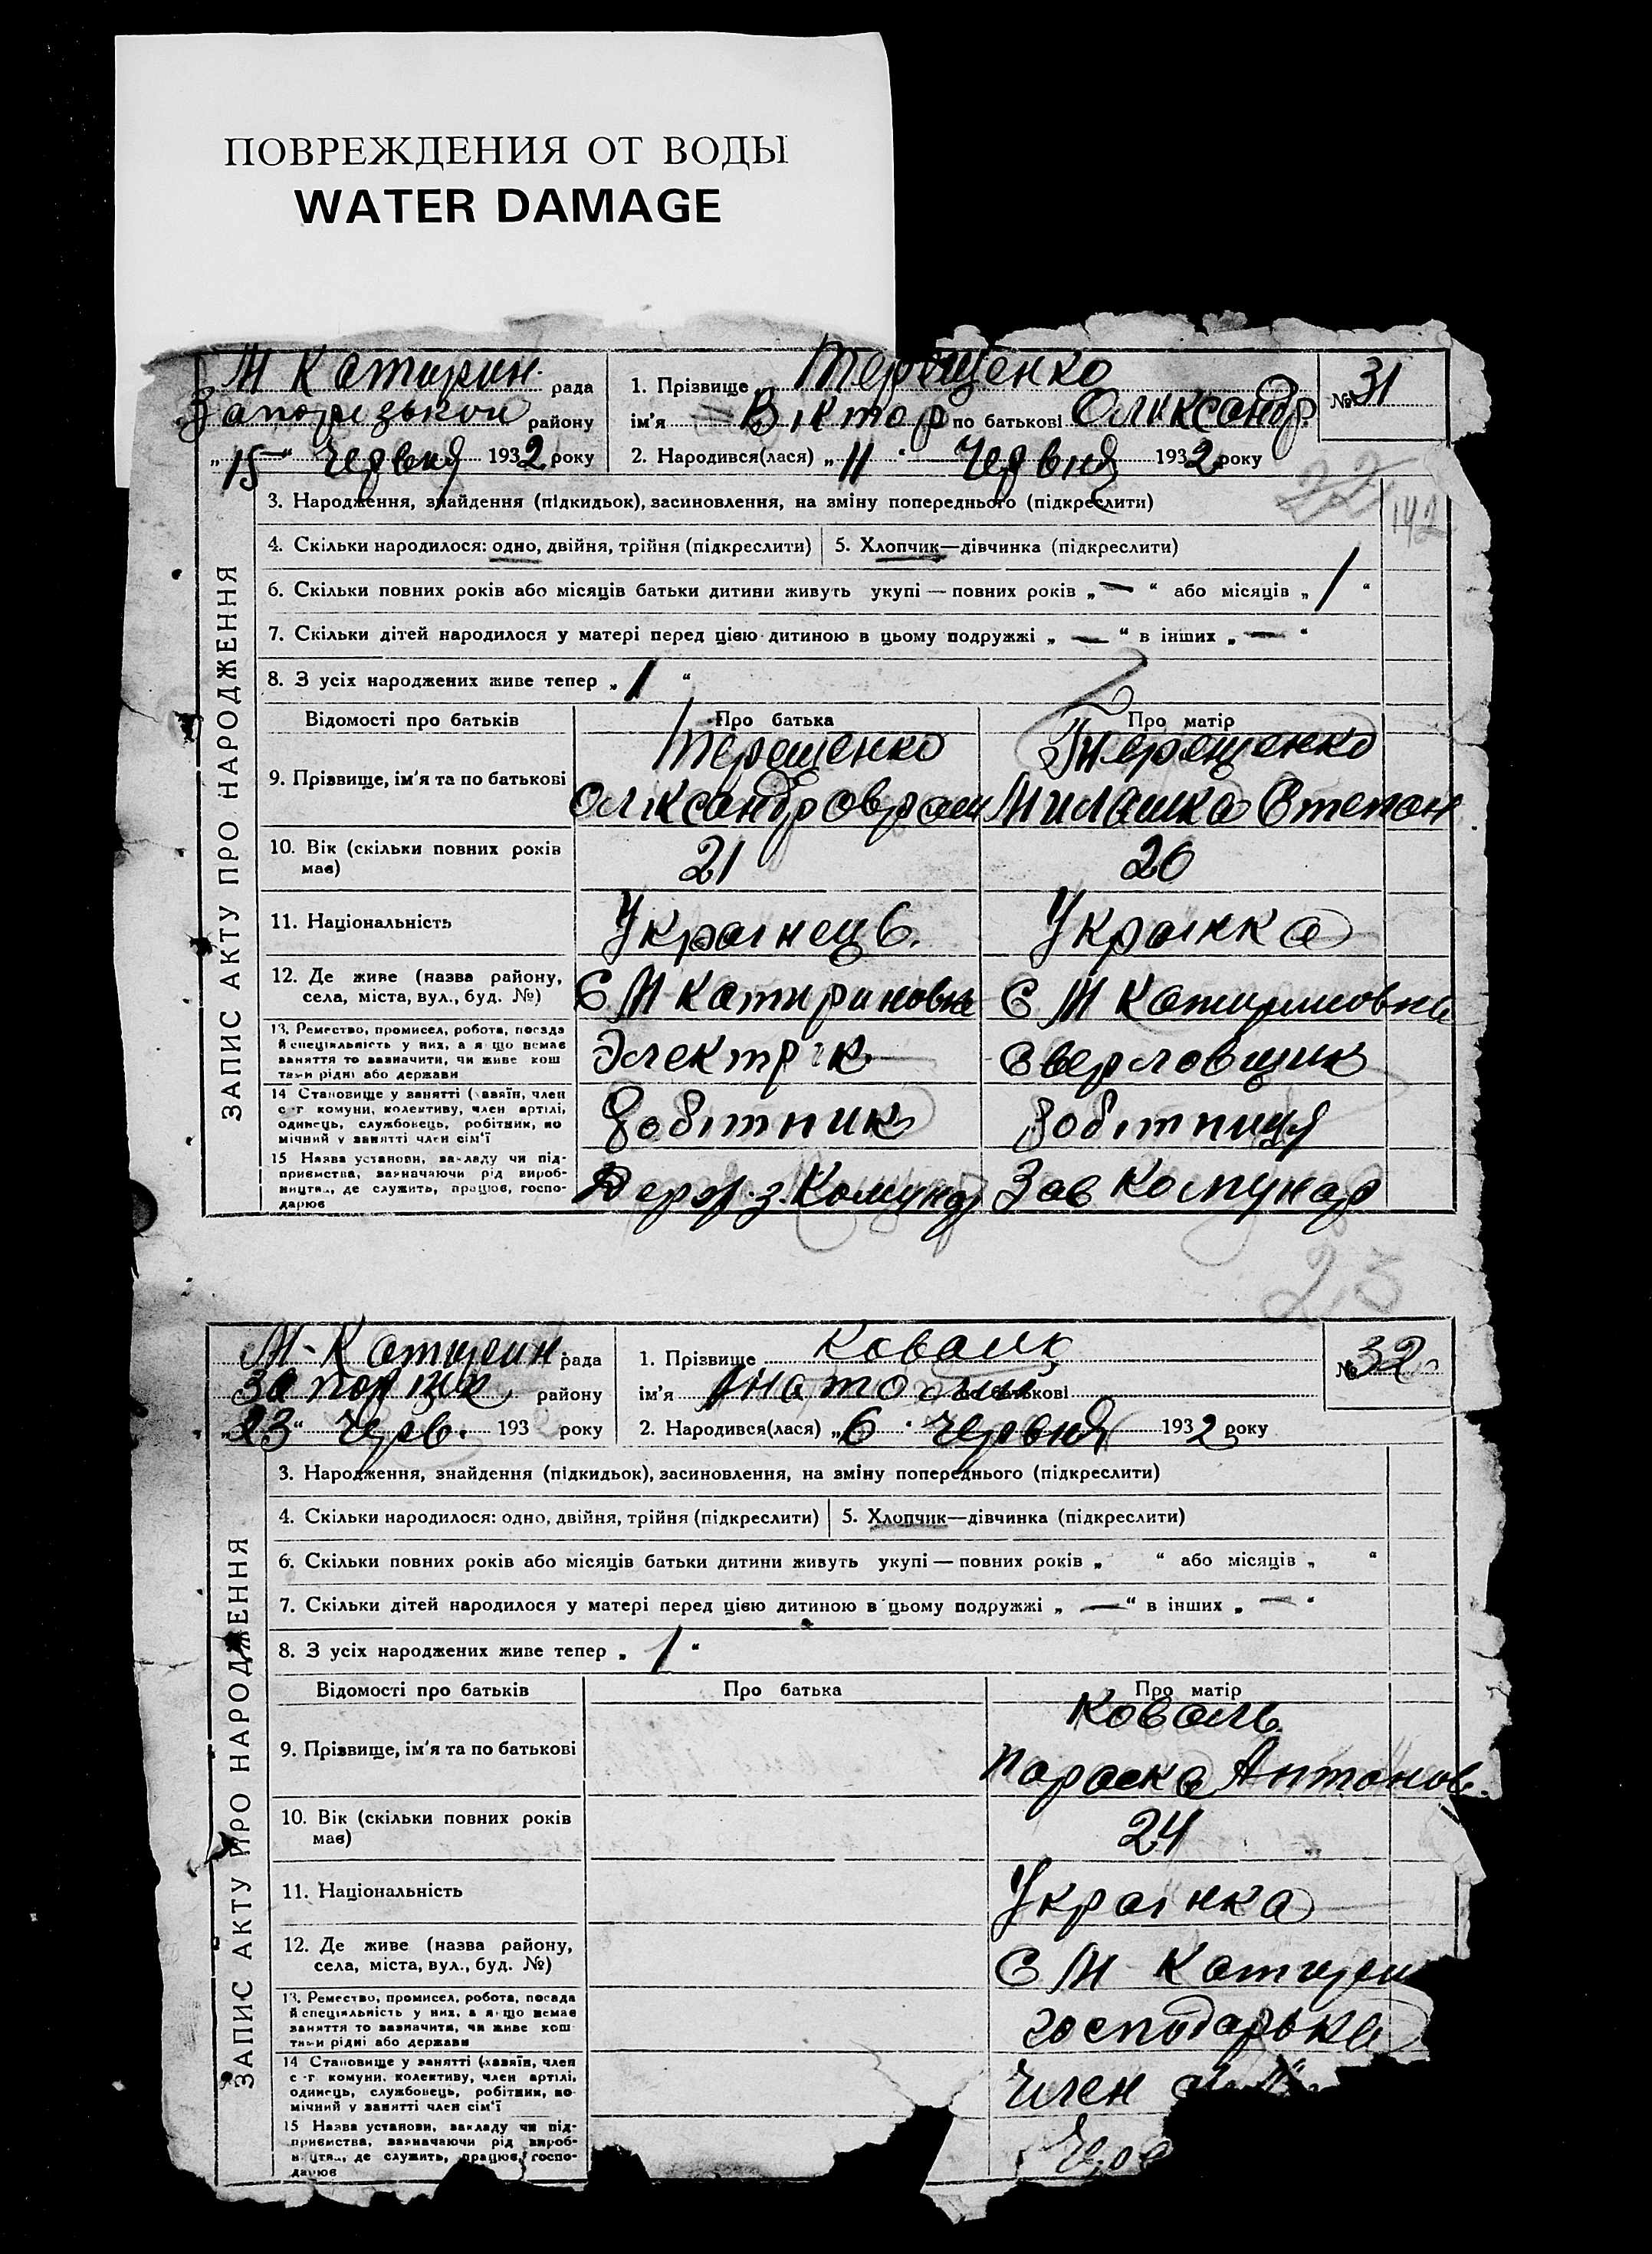 ПОВРЕЖДЕНИЯ ОТ ВОДЫ
WATER DAMAGE
М Катирин. рада
Запорізькой району
„15“ Червня 1932 року
1. Прізвище Терещенко
ім'я Віктор по батькові Олександр.
2. Народився(лася) „11 Червня 1932 року
№ 31
22
142
ЗАПИС АКТУ ПРО НАРОДЖЕННЯ
3. Народження, знайдення (підкидьок), засиновлення, на зміну попереднього (підкреслити)
4. Скільки народилося: одно, двійня, трійня (підкреслити)
5. Хлопчик—дівчинка (підкреслити)
6. Скільки повних років або місяців батьки дитини живуть укупі — повних років „ — “ або місяців „ 1 “
7. Скільки дітей народилося у матері перед цією дитиною в цьому подружжі „ — “ в інших „ — “
8. З усіх народжених живе тепер „ 1 “
Відомості про батьків
Про батька
Про матір
9. Прізвище, ім'я та по батькові
Терещенко
Терещенко
Милашка Степан
10. Вік (скільки повних років має)
21
20
11. Національність
Українець.
Українка
12. Де живе (назва району, села, міста, вул., буд. №)
С М Катириновка
С М Катириновка
13. Ремество, промисел, робота, посада й спеціяльність у них, а якщо немає заняття то зазначити, чи живе коштами рідні або держави
Электрік
Сверловщик
14 Становище у занятті (хазяїн, член с-г комуни, колективу, член артілі, одинець, службовець, робітник, помічний у занятті член сім'ї
Робітник
Робітниця
15 Назва установи, закладу чи підприємства, зазначаючи рід виробництва, де служить, працює, господарює
Держ. з. Комунар
Зав Комунар
23
М-Катирин. рада
Запоріжк. району
„23“ Черв. 193 року
1. Прізвище Коваль
ім'я Анатолий по батькові
2. Народився(лася) „6 Червня 1932 року
№ 32
ЗАПИС АКТУ ПРО НАРОДЖЕННЯ
3. Народження, знайдення (підкидьок), засиновлення, на зміну попереднього (підкреслити)
4. Скільки народилося: одно, двійня, трійня (підкреслити)
5. Хлопчик—дівчинка (підкреслити)
6. Скільки повних років або місяців батьки дитини живуть укупі — повних років „ “ або місяців „ “
7. Скільки дітей народилося у матері перед цією дитиною в цьому подружжі „ — “ в інших „ — “
8. З усіх народжених живе тепер „ 1 “
Відомості про батьків
Про батька
Про матір
9. Прізвище, ім'я та по батькові
Коваль
Параска Антонов.
10. Вік (скільки повних років має)
24
11. Національність
Українка
12. Де живе (назва району, села, міста, вул., буд. №)
С М Катирин
13. Ремество, промисел, робота, посада й спеціяльність у них, а якщо немає заняття то зазначити, чи живе коштами рідні або держави
господарька
14 Становище у занятті (хазяїн, член с-г комуни, колективу, член артілі, одинець, службовець, робітник, помічний у занятті член сім'ї
Член
15 Назва установи, закладу чи підприємства, зазначаючи рід виробництва, де служить, працює, господарює